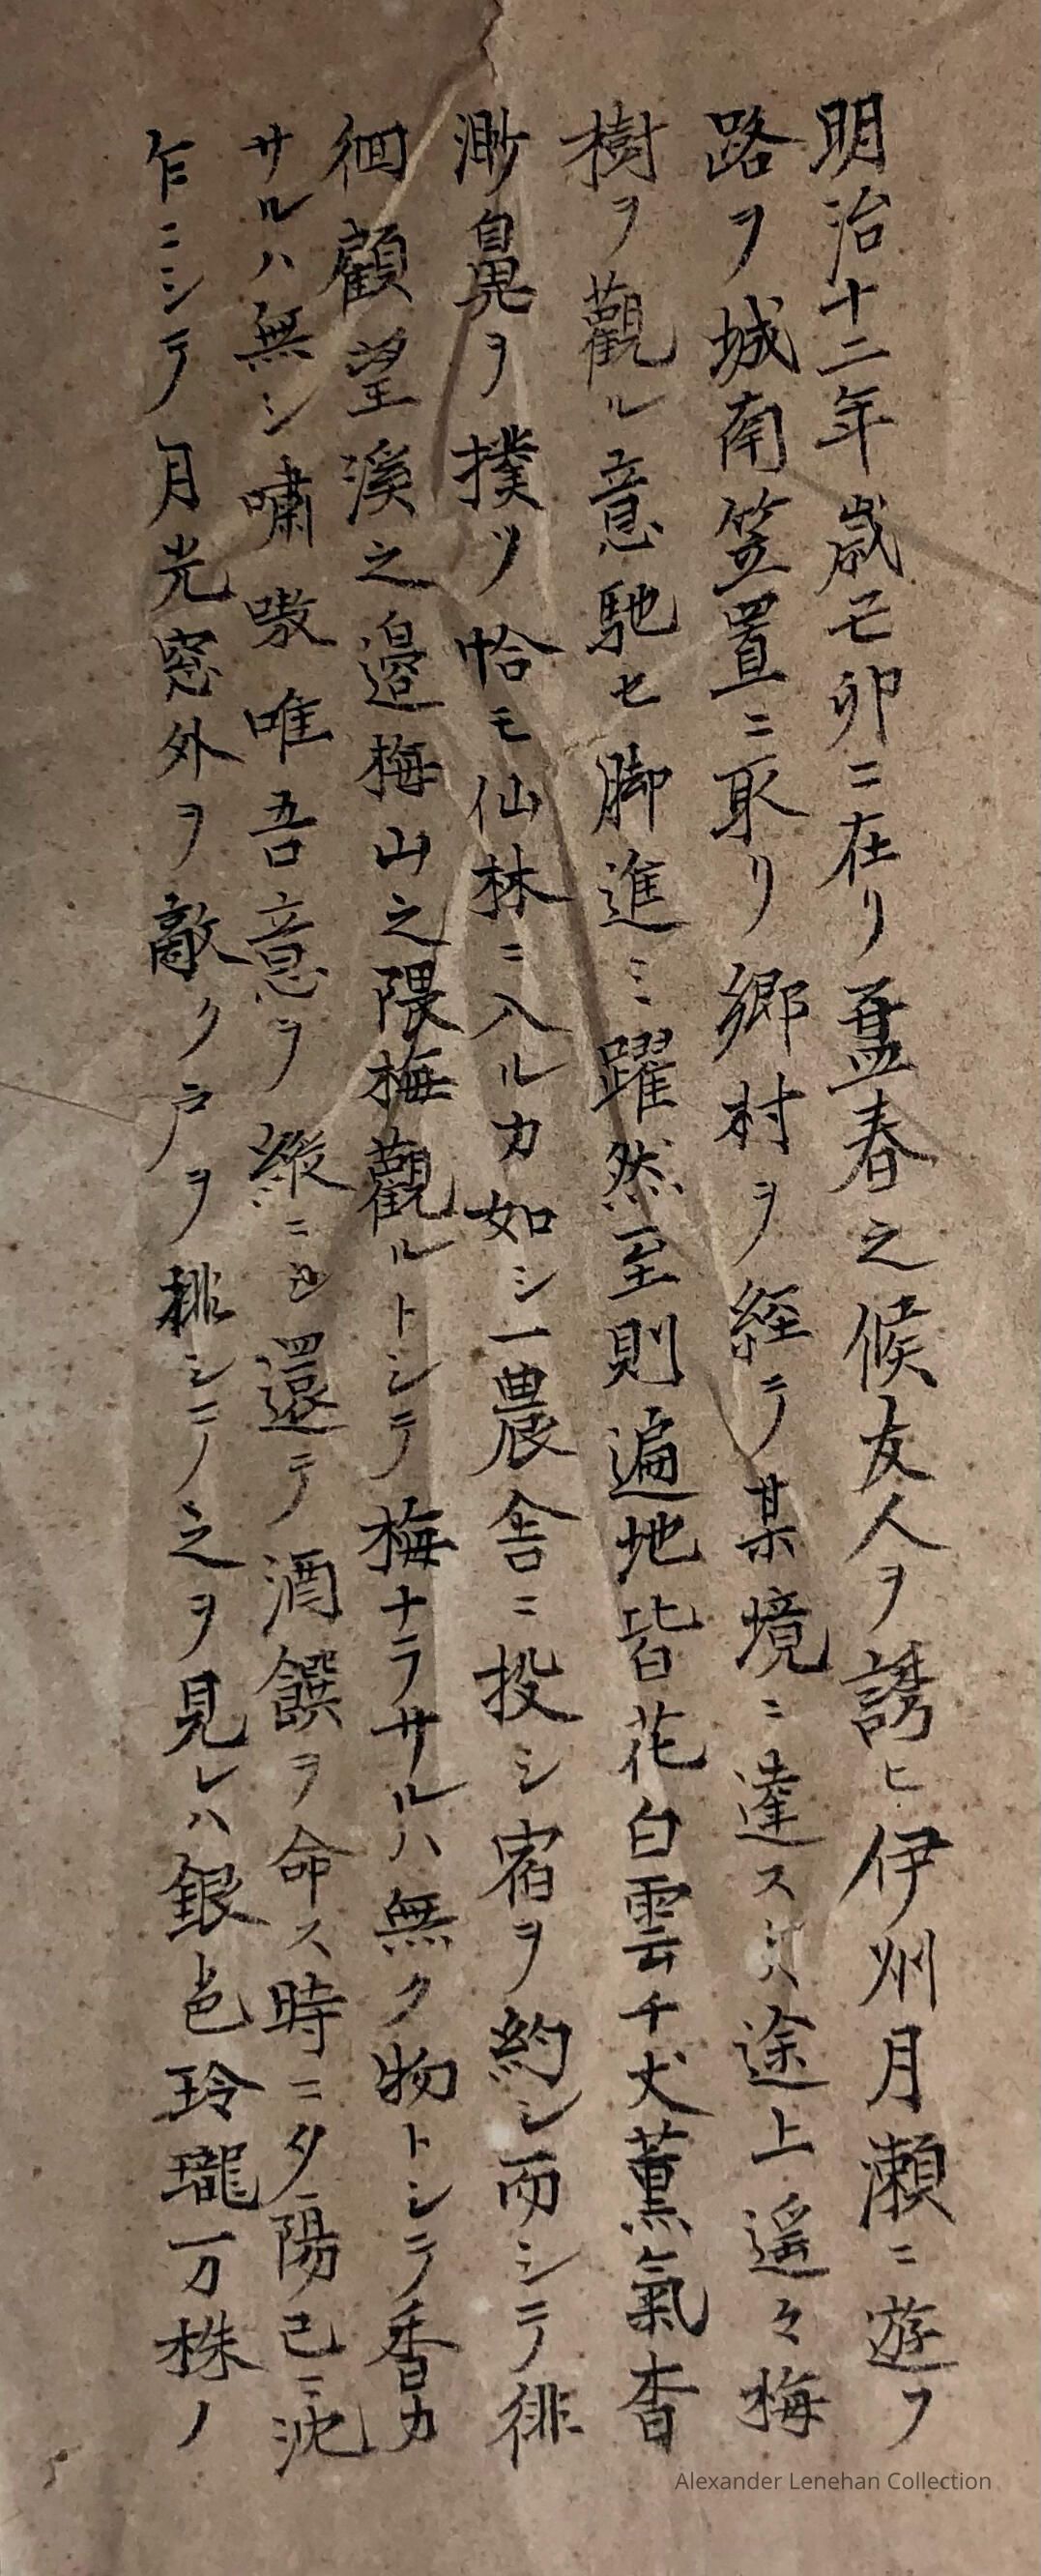 明治十二年歳己卯ニ在リ孟春之候友人ヲ誘ヒ伊州月瀬ニ遊フ
路ヲ城南笠置ニ取リ郷村ヲ経テ某境ニ達ス途上遥々梅
樹ヲ觀ル意馳セ脚進ミ躍然至則遍地皆花白雲千丈薫氣杳
渺鼻ヲ撲ツ恰モ仙林ニ入ルカ如シ一農舎ニ投シ宿ヲ約シ而シテ徘
徊顧望溪之邉梅山之隈梅觀ルトシテ梅ナラサルハ無ク物トシテ香カ
サルハ無シ嘯嗷唯吾意ヲ縦ニ還テ酒饌ヲ命ス時ニ夕陽已ニ沈
乍ニシテ月光窓外ヲ敲ク戸ヲ排シテ之ヲ見レハ銀色玲瓏一万株ノ
Alexander Lenehan Collection